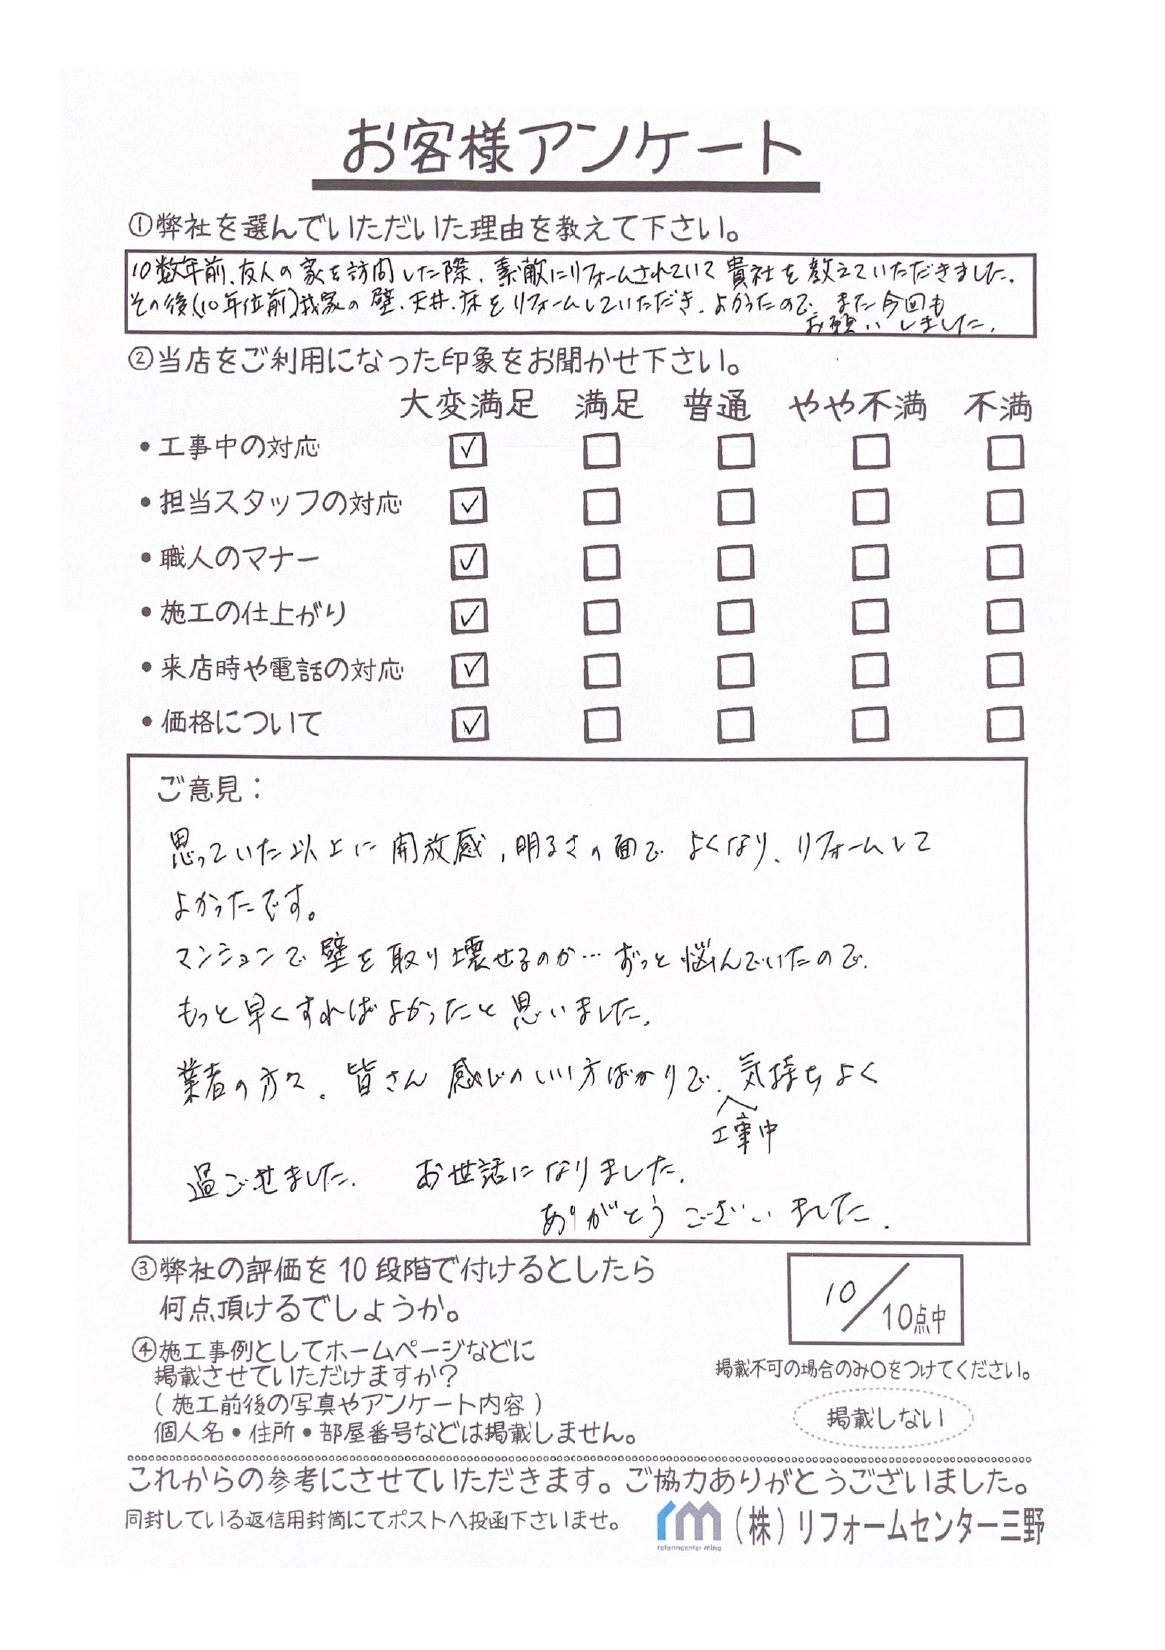 お客様アンケート
①弊社を選んでいただいた理由を教えて下さい。
10数年前、友人の家を訪問した際、素敵にリフォームされていて貴社を教えていただきました。
その後、(10年位前)我家の壁、天井、床をリフォームしていただき、よかったので、また今回も
お願いしました。
②当店をご利用になった印象をお聞かせ下さい。
大変満足 満足 普通 やや不満 不満
•工事中の対応 ☑ ☐ ☐ ☐ ☐
•担当スタッフの対応 ☑ ☐ ☐ ☐ ☐
•職人のマナー ☑ ☐ ☐ ☐ ☐
•施工の仕上がり ☑ ☐ ☐ ☐ ☐
•来店時や電話の対応 ☑ ☐ ☐ ☐ ☐
•価格について ☑ ☐ ☐ ☐ ☐
ご意見：
思っていた以上に開放感、明るさの面でよくなり、リフォームして
よかったです。
マンションで壁を取り壊せるのか…ずっと悩んでいたので、
もっと早くすればよかったと思いました。
業者の方々、皆さん感じのいい方ばかりで、気持ちよく
工事中
過ごせました。 お世話になりました。
ありがとうございました。
③弊社の評価を10段階で付けるとしたら
何点頂けるでしょうか。
10/10点中
④施工事例としてホームページなどに
掲載させていただけますか？
(施工前後の写真やアンケート内容)
個人名•住所•部屋番号などは掲載しません。
掲載不可の場合のみ〇をつけてください。
掲載しない
これからの参考にさせていただきます。ご協力ありがとうございました。
同封している返信用封筒にてポストへ投函下さいませ。
rm
reformcenter mino
(株)リフォームセンター三野